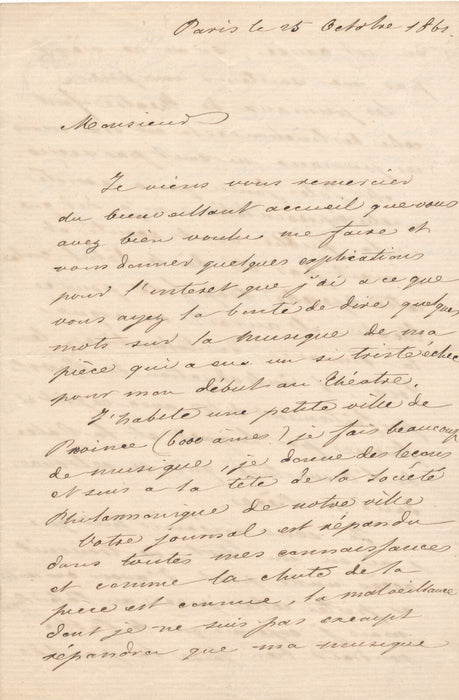 Paris le 25 Octobre 1861.
Monsieur
Je viens vous remercier
du bienveillant accueil que vous
avez bien voulu me faire et
vous donner quelques explications
pour l'interet que j'ai a ce que
vous ayez la bonté de dire quelques
mots sur la musique de ma
pièce qui a eu un si triste échec
pour mon début au théatre.
J'habite une petite ville de
Province (6000 âmes) je fais beaucoup
de musique, je donne des leçons
et suis a la tête de la Société
Philarmonique de notre ville
Votre journal est répandu
dans toutes mes connaissances
et comme la chute de la
pièce est connue, la malveillance
dont je ne suis pas exempt
répandra que ma musique